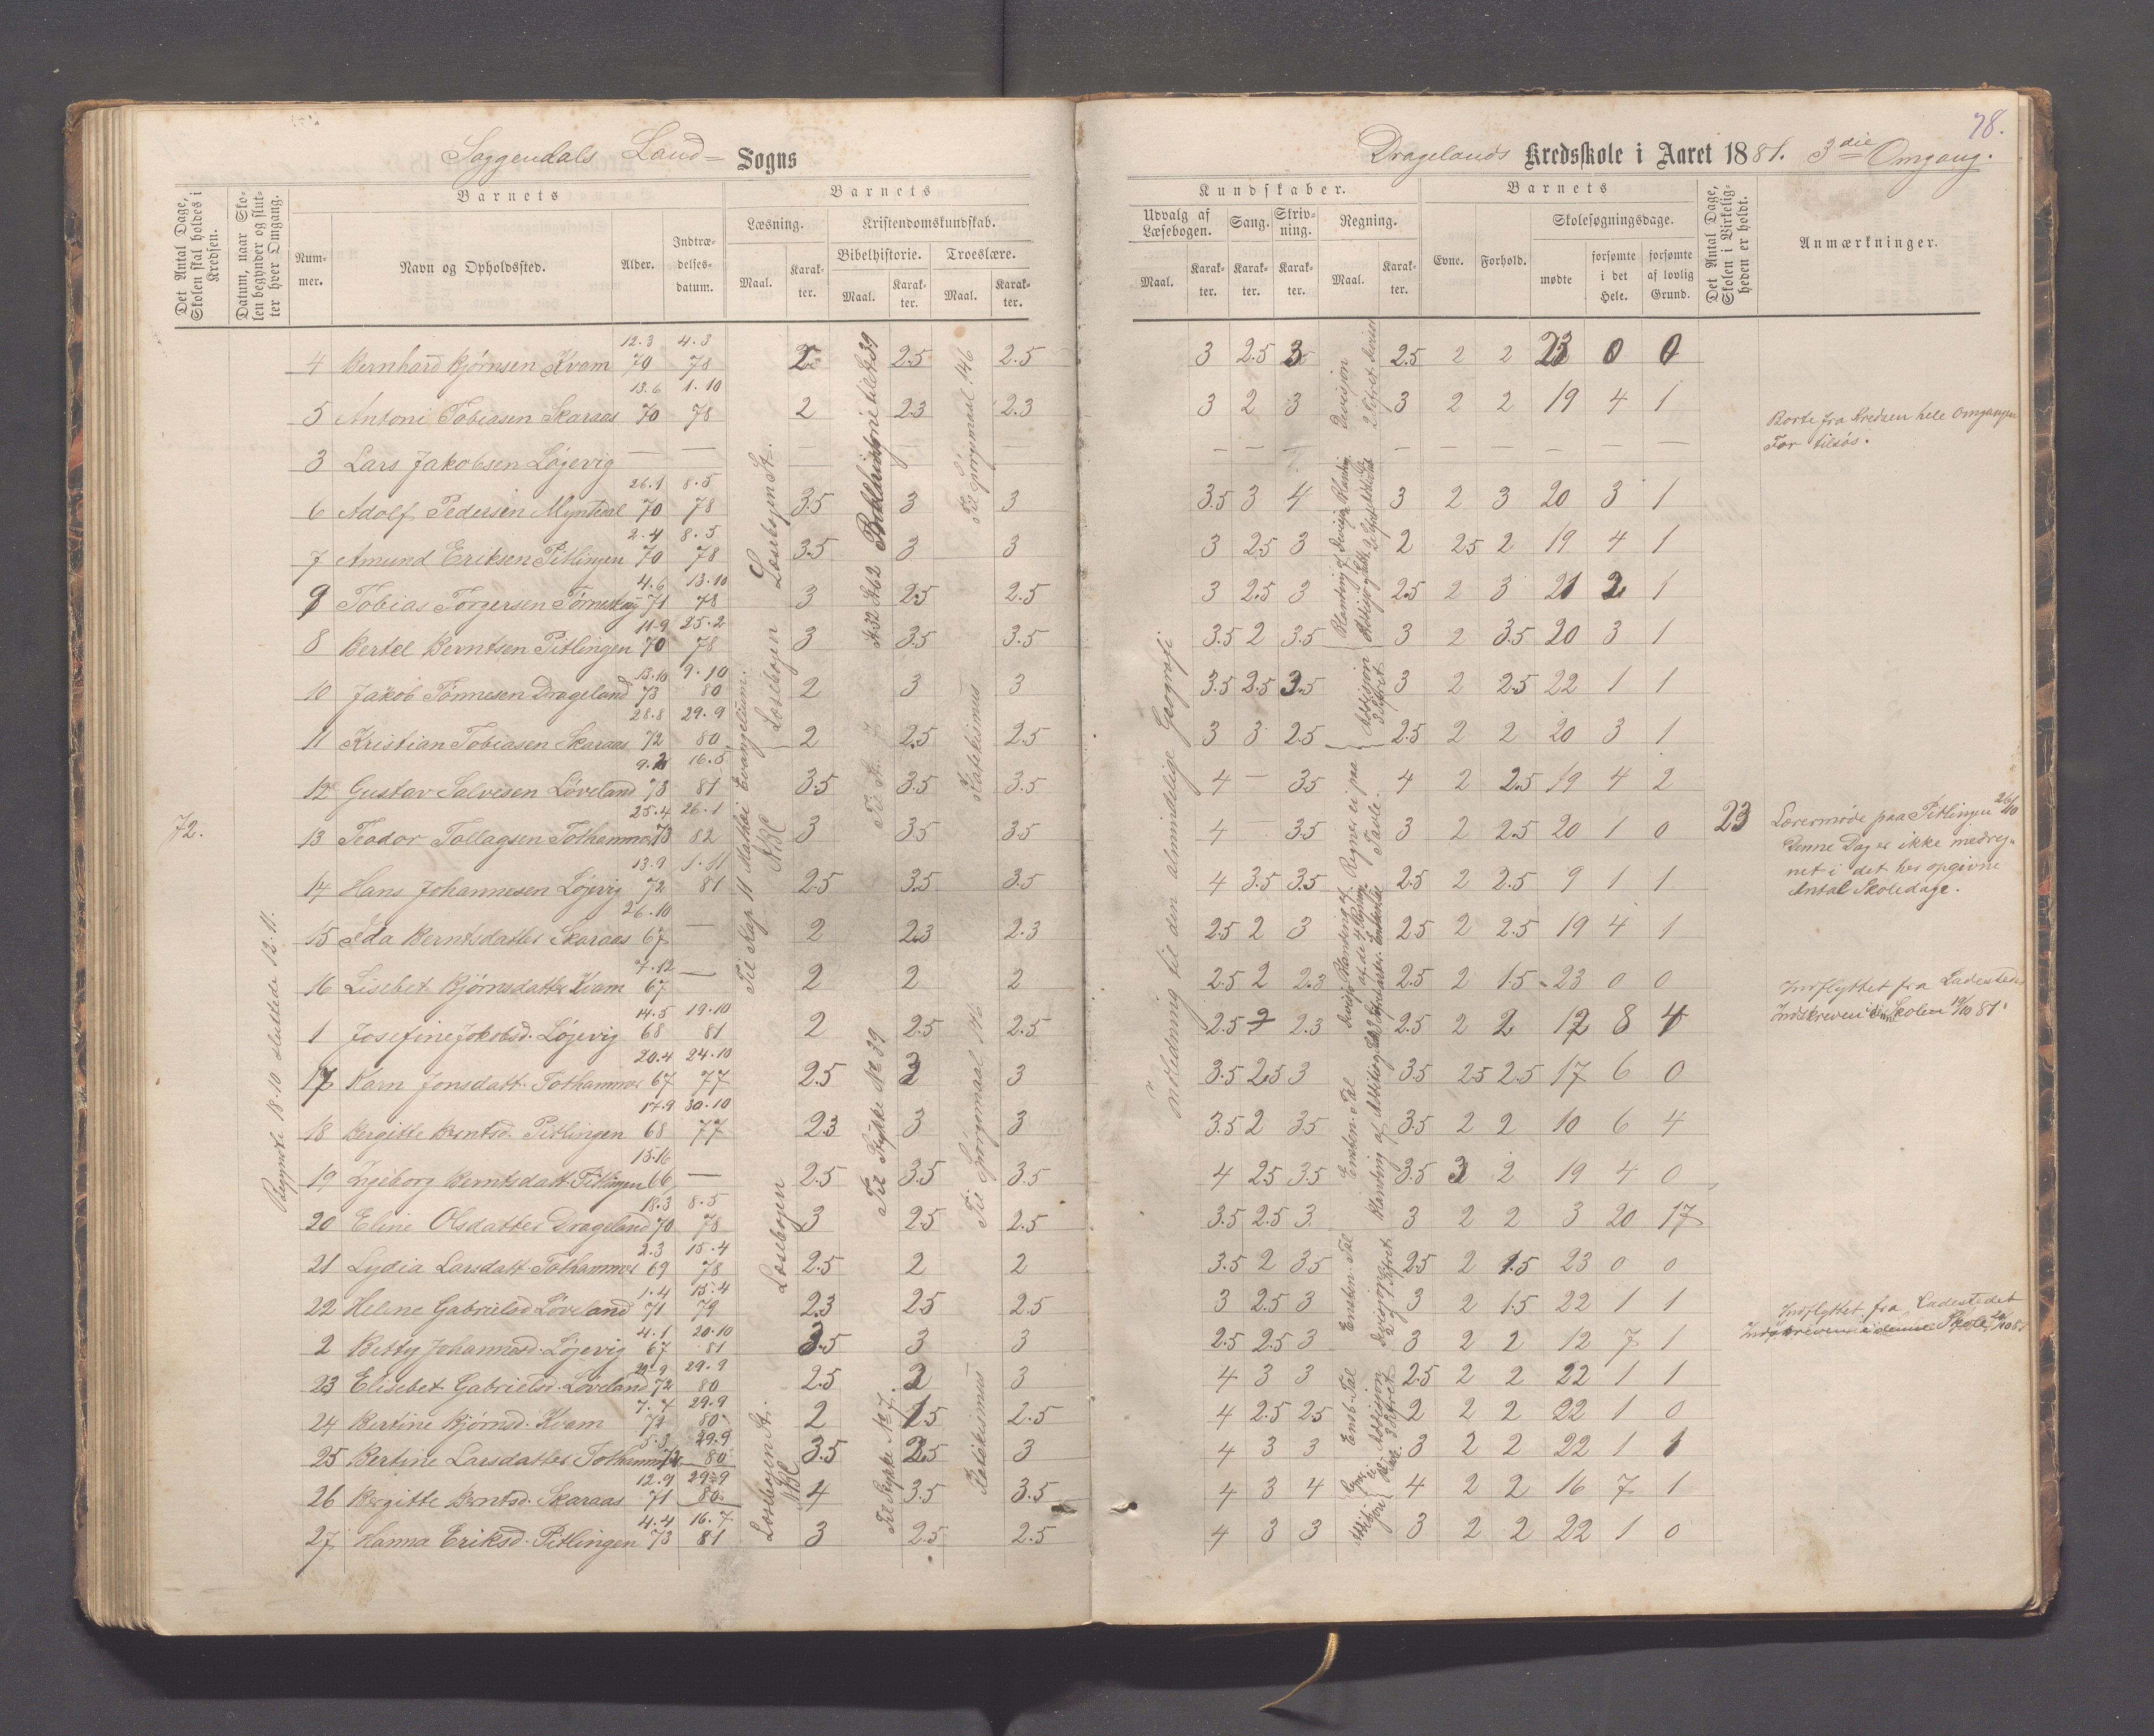 78.
Soggendals Land= Sogns
Dragelands Kredsskole i Aaret 1881. 3die Omgang.
Det Antal Dage, Skolen skal holdes i Kredsen.
Datum, naar Skolen begynder og slutter hver Omgang.
Barnets
Nummer.
Navn og Opholdssted.
Alder.
Indtrædelsesdatum.
Barnets
Læsning.
Maal.
Karakter.
Kristendomskundskab.
Bibelhistorie.
Maal.
Karakter.
Troeslære.
Maal.
Karakter.
Kundskaber.
Udvalg af Læsebogen.
Maal.
Karakter.
Sang.
Karakter.
Skrivning.
Karakter.
Regning.
Maal.
Karakter.
Barnets
Evne.
Forhold.
Skolesøgningsdage.
mødte
forsømte i det Hele.
forsømte af lovlig Grund.
Det Antal Dage, Skolen i Virkeligheden er holdt.
Anmærkninger.
72.
Begyndte 18.10 sluttede 12.11.
4 Bernhard Bjørnsen Kvam 12.3 70 4.3 78 2 2.5 2.5 3 2.5 3 2.5 2 2 23 0 0
5 Antoni Tobiasen Skaraas 13.6 70 1.10 78 2 2.3 2.3 3 2 3 3 2 2 19 4 1
3 Lars Jakobsen Løjevig — — — — — — — — — — — — — —
6 Adolf Pedersen Myntedal 26.1 70 8.5 78 3.5 3 3 3.5 3 4 3 2 3 20 3 1
7 Amund Eriksen Pitlingen 2.4 70 8.5 78 3.5 3 3 3 2.5 3 2 2.5 2 19 4 1
9 Tobias Torgersen 4.6 71 13.10 78 3 2.5 2.5 3 2.5 3 2.5 2 3 21 2 1
8 Bertel Berntsen Pitlingen 11.9 70 25.2 78 3 3.5 3.5 3.5 2 3.5 3 2 3.5 20 3 1
10 Jakob Tønnesen Drageland 13.10 73 9.10 80 2 3 3 3.5 2.5 3.5 3 2 2.5 22 1 1
11 Kristian Tobiasen Skaraas 28.8 72 29.9 80 2 2.5 2.5 3 3 2.5 2.5 2 2 20 3 1
12 Gustav Salvesen Løveland 9.2 73 16.5 81 3.5 3.5 3.5 4 — 3.5 4 2 2.5 19 4 2
13 Teodor Tollagsen Tothammer 25.4 73 26.1 82 3 3.5 3.5 4 — 3.5 3 2 2.5 20 1 0
14 Hans Johannesen Løjevig 13.9 72 1.11 81 2.5 3.5 3.5 4 3.5 3.5 2.5 2 2.5 9 1 1
15 Ida Berntsdatter Skaraas 26.10 67 — 2 2.3 2.3 2.5 2 3 2.5 2 2.5 19 4 1
16 Lisebet Bjørnsdatter Kvam 7.12 67 — 2 2 2 2.5 2 2.3 2.5 2 1.5 23 0 0
1 Josefine Jokobsd. Løjevig 14.5 68 19.10 81 2 2.5 2.5 2.5 2 2.3 2.5 2 2 12 8 4
17 Karn Jonsdatt. Tothammer 20.4 67 24.10 77 2.5 3 3 3.5 2.5 3 3.5 2.5 2.5 17 6 0
18 Bergitte Berntsd. Pitlingen 17.9 68 30.10 77 2.3 3 3 3.5 2 3.5 3.5 2 2 10 6 4
19 Ingeborg Berntsdatt. Pitlingen 66 — 2.5 3.5 3.5 4 2.5 3.5 3.5 3 2 19 4 0
20 Eline Olsdatter Drageland 18.3 70 8.5 78 3 2.5 2.5 3.5 2.5 3 3 2 2 3 20 17
21 Lydia Larsdatt. Tothammer 2.3 69 15.4 78 2.5 2 2 3.5 2 3.5 2.5 2 1.5 23 0 0
22 Helene Gabrielsd. Løveland 1.4 71 15.4 79 2.3 2.5 2.5 3 2.5 3 3 2 1.5 22 1 1
2 Betty Johannesd. Løjevig 4.1 67 20.10 81 3.5 3 3 2.5 2.5 3 3 2 2 12 7 1
23 Elisebet Gabrielsd. Løveland 72 29.9 80 2.5 3 3 4 3 3 2.5 2 2 22 1 1
24 Bertine Bjørnsd. Kvam 7.7 73 29.9 80 2 1.5 2.5 4 2.5 2.5 2 2 2 22 1 0
25 Bertine Larsdatter Tothammer 5.3 72 29.9 80 3.5 2.5 3 4 3 3 3 2 2 22 1 1
26 Bergitte Berntsd. Skaraas 12.9 71 29.9 80 4 3.5 3.5 4 3 4 4 2 2 16 7 1
27 Hanna Eriksd. Pitlingen 4.4 73 16.7 81 3 2.5 2.5 4 3 3 3 2 2 22 1 0
Læsebogen St.
Læsebogen
Til Kap 11 Mathæi Evangelium.
ABC
Læsebogen
Læsebogen St.
ABC
Til Stykke No 39
Til Stykke No 7
Til Spørgmaal 146
Katekismus
Til Spørgmaal 146
Katekismus
Indledning til den almindelige Geografi
Divisjon
Addisjon 3 Sifret
Regner ei paa Tavle.
Eensben. Tal
Eensben. Tal
23
Borte fra Kredsen hele Omgangen
Før tilsøs.
Lærermøde paa Pitlingen 26/10
Denne Dag er ikke medreg=
net i det her opgivne
Antal Skoledage.
Indflyttet fra Ladestedet
Indskreven i denne Skolen 19/10 81.
Indflyttet fra Ladestedet
Indskreven i denne Skole 20/10 81